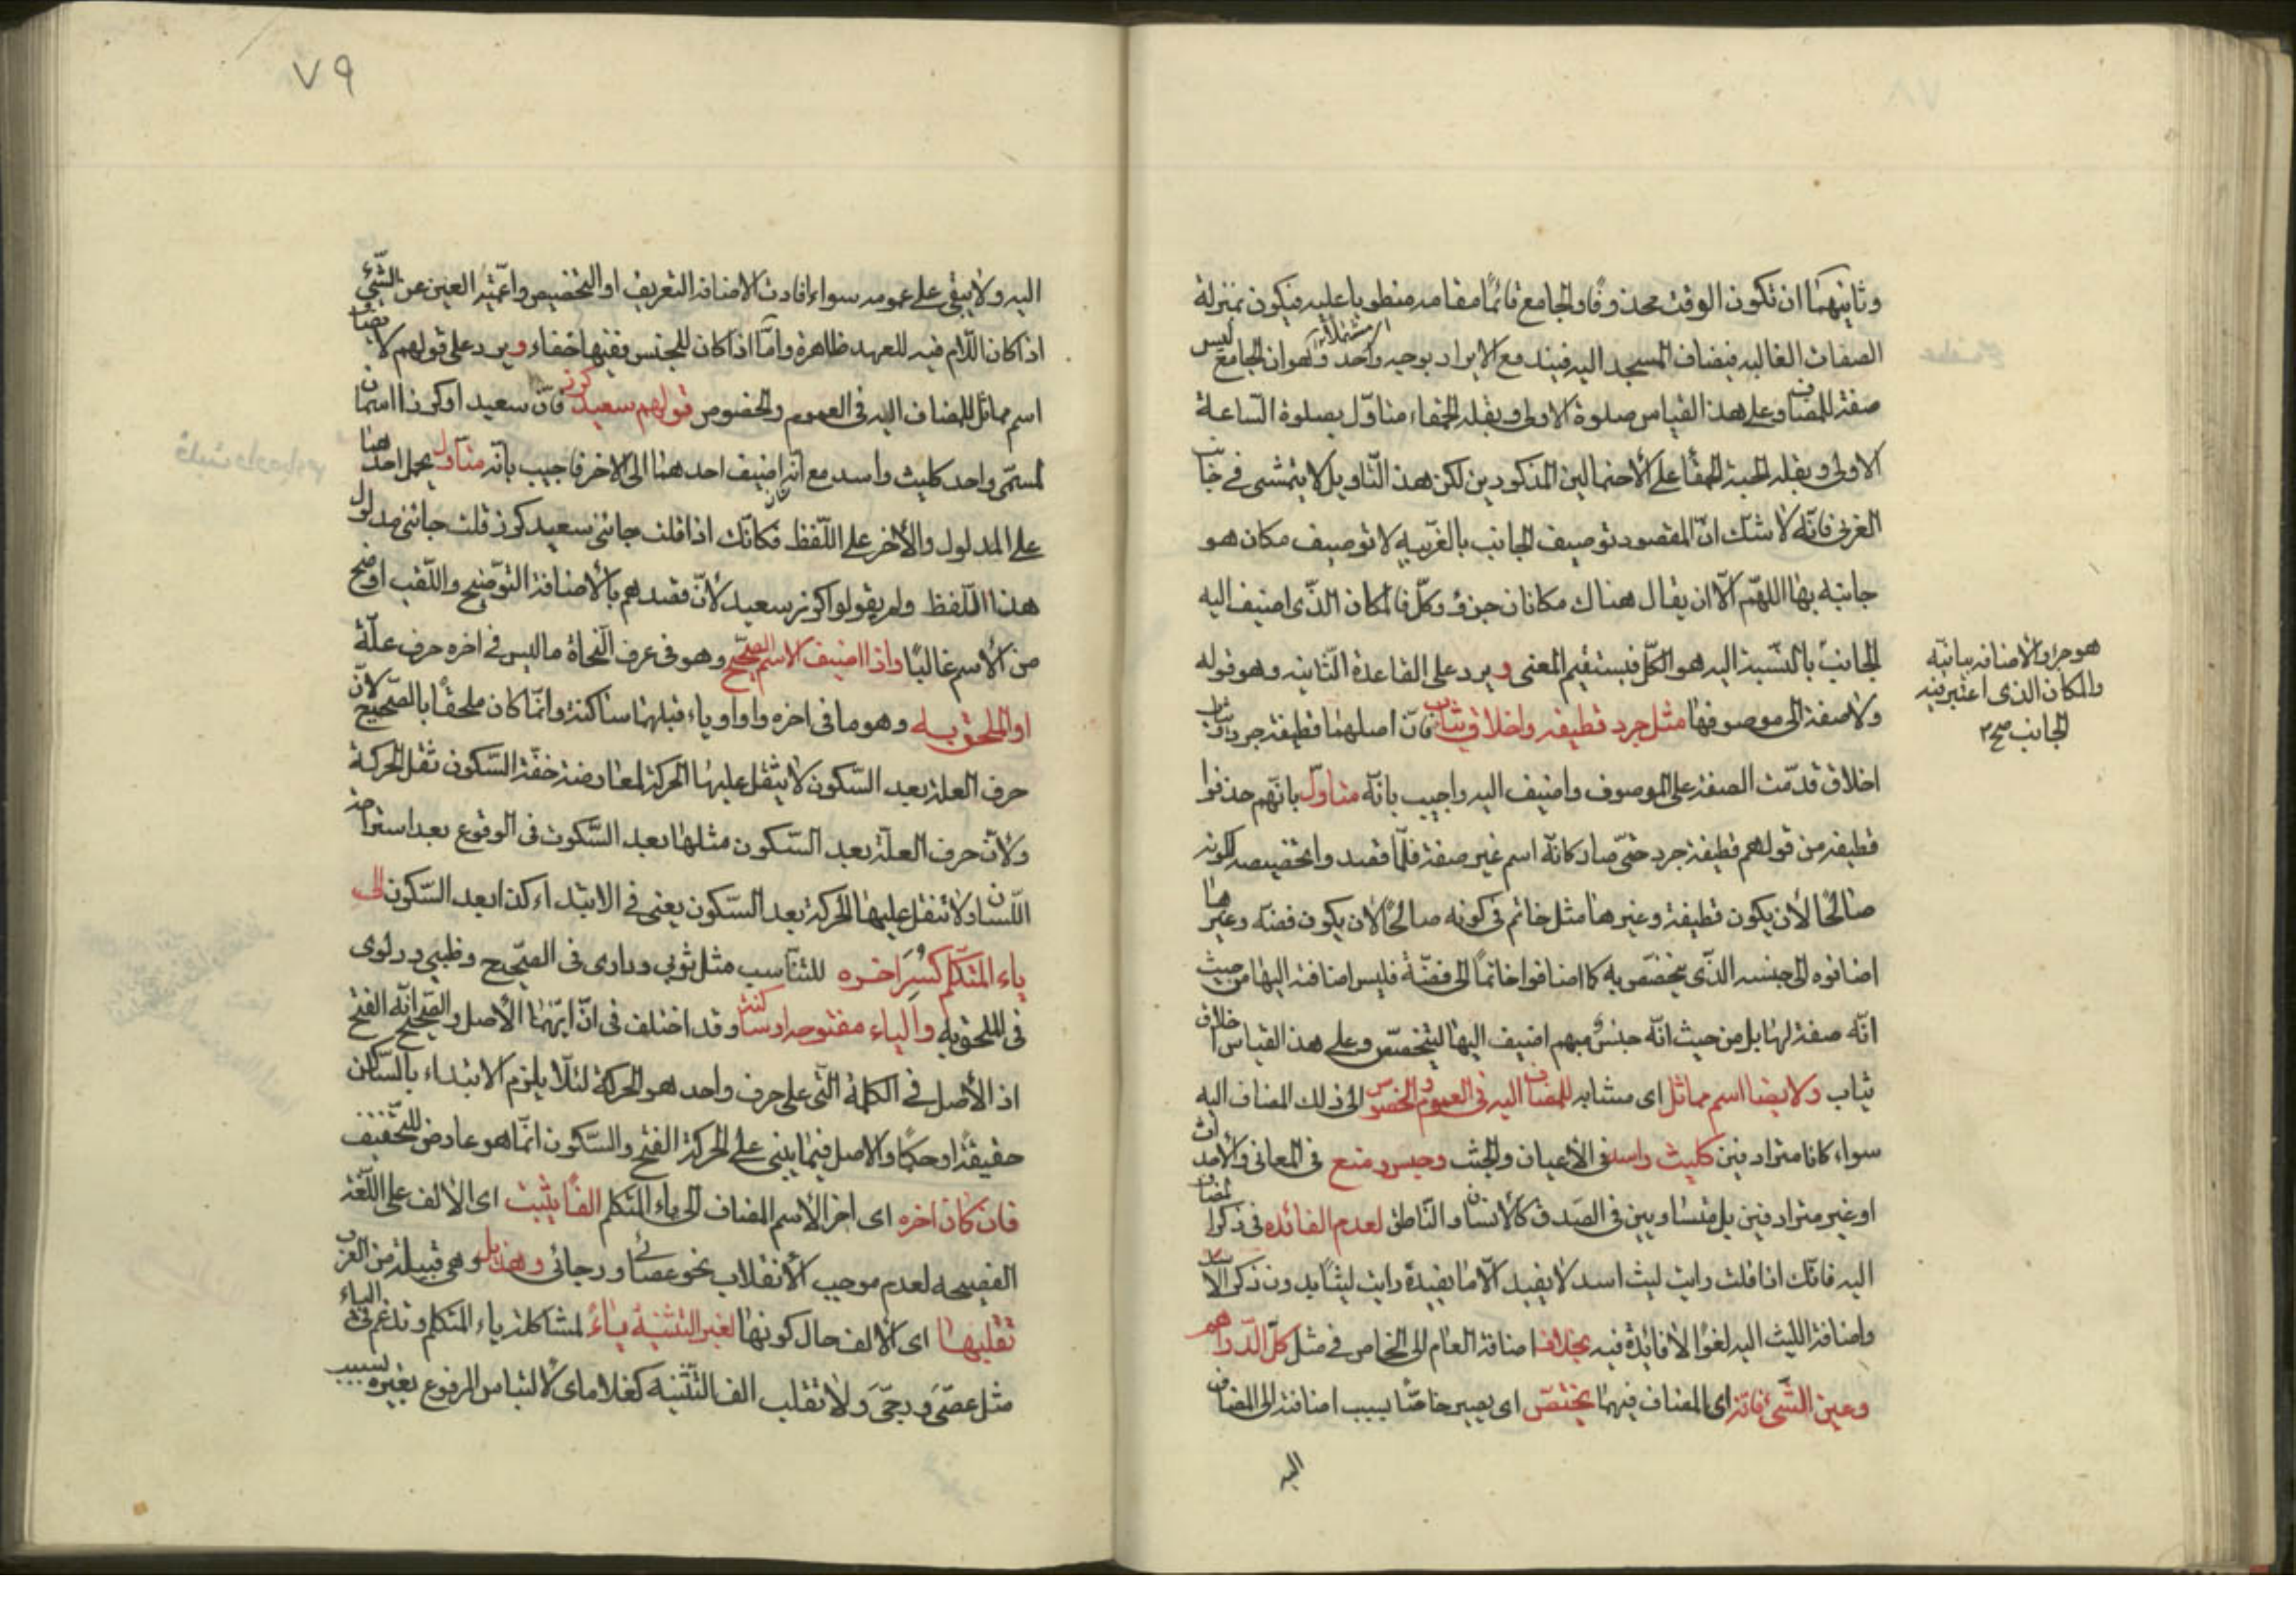 وثانيهما ان تكون الوقت محذوفا والجامع قائمًا مقامه منطويا عليه فيكون بمنزلة
الصفات الغالبه فيضاف المسجد اليه فيندفع الايراد بوجه واحد وهو ان الجامع ليس
صفة للمضاف وعلى هذا القياس صلوة الاولى وبقلة الحمقاء متاوّل بصلوة السّاعة
الاولى وبقلة الحبة الحمقا على الاحتمالين المذكورين لكن هذا التّاويل لا يتمشى في جانب
الغربى فانّه لا شكّ انّ المقصود توصيف الجانب بالغربيه لا توصيف مكان هو
جانبه بها اللهمّ الّا ان يقال هناك مكانان جزؤ وكلّ فالمكان الذّى اضيف اليه
الجانب بالنّسبة اليه هو الكلّ فيستقيم المعنى ويرد على القاعدة الثّانيه وهو قوله
ولا صفة الى موصوفها مثل جرد قطيفه واخلاق ثياب فانّ اصلهما قطيفة جرد وثياب
اخلاق قدّمت الصفة على الموصوف واضيف اليه واجيب بانّه متاوّل بانّهم حذفوا
قطيفه من قولهم قطيفة جرد حتّى صار كانّه اسم غير صفة فلمّا قصدوا تخصيصه لكونه
صالحًا لأن يكون قطيفة وغيرها مثل خاتم فى كونه صالحًا لان يكون فضة وغيرها
اضافوه الى جنسه الذّى يتخصّص به كما اضافوا خاتمًا الى فضّة فليس اضافته اليها من حيث
انّه صفة لها بل من حيث انّه جنس مبهم اضيف اليها ليتخصّص وعلى هذا القياس اخلاق
ثياب ولا يضاف اسم مماثل اى مشابه للمضاف اليه فى العموم والخصوص الى ذلك المضاف اليه
سواء كانا مترادفين كليث واسد فى الأعيان والجثث وحبس ومنع فى المعانى والأحداث
او غير مترادفين بل متساويين فى الصّدق كالأنسان والنّاطق لعدم الفائده فى ذكر المضاف
اليه فانّك اذا قلت رايت ليث اسد لا يفيد الّا ما يفيدة رايت ليثًا بدون ذكر الاسد
واضافة الليث اليه لغوًا لا فائدة فيه بخلاف اضافة العام الى الخاص فى مثل كلّ الدّراهم
وعين الشّئ فانّه اى المضاف فيهما يختصّ اى يصير خاصّا بسبب اضافته الى المضاف
اليه
هو جزء والاضافه بيانيّة
والمكان الذى اعتبر فيه
الجانب صح
٧٩
اليه ولا يبقى على عمومه سواء افادت الاضافة التعريف او التخصيص واعميّة العين عن الشّئ
اذا كان اللّام فيه للعهد ظاهرة وامّا اذا كان للجنس ففيها خفاء ويرد على قولهم لا يضاف
اسم مماثل للمضاف اليه فى العموم والخصوص قولهم سعيد كرز فانّ سعيد او كرزا اسمان
لمسمّى واحد كليث واسد مع انّه اضيف احدهما الى الاخر فاجيب بانّه متاوّل بحمل احدهما
على المدلول والأخر على اللّفظ فكانّك اذا قلت جائنى سعيد كرز قلت جائنى مدلول
هذا اللّفظ ولم يقولوا كرز سعيد لأنّ قصدهم بالأضافة التّوضيح واللّقب اوضح
من الأسم غالبًا واذا اضيف الاسم الصّحيح وهو فى عرف النّحاة ما ليس فى اخره حرف علّة
او الملحق به وهو ما فى اخره واو او ياء قبلهما ساكنة وانّما كان ملحقًا بالصّحيح لانّ
حرف العلة بعد السّكون لا يثقل عليها الحركة لمعارضة خفّة السّكون ثقل الحركة
ولأنّ حرف العلّة بعد السّكون مثلها بعد السّكوت فى الوقوع بعد استراحة
اللّسان ولا تثقل عليها الحركة بعد السّكون يعنى فى الابتداء كذا بعد السّكون الى
ياء المتكلّم كُسِرَ اخره للتّناسب مثل ثوبى ودارى فى الصّحيح وظبيى ودلوى
فى الملحق به والياء مفتوحة او ساكنة وقد اختلف فى انّ ايّهما الأصل والصّحيح انّه الفتح
اذ الأصل فى الكلمة الّتى على حرف واحد هو الحركة لئلّا يلزم الابتداء بالسّاكن
حقيقة او حكمًا والاصل فيما يبنى على الحركة الفتح والسّكون انّما هو عارض للتّخفيف
فان كان اخره اى اخر الأسم المضاف الى ياء المتكلم الفًا يثبت اى الألف على اللّغة
الفصيحه لعدم موجب الأنقلاب نحو عصائى ورجائى وهذيل وهى قبيلة من العرب
تقلبها اى الألف حال كونها لغير التّثنيه ياءً لمشاكلة ياء المتكلم وتدغم فى الياء
مثل عصَىَّ ورجَىَّ ولا تقلب الف التّثنيه كغلاماى لالتباس المرفوع بغيره بسبب